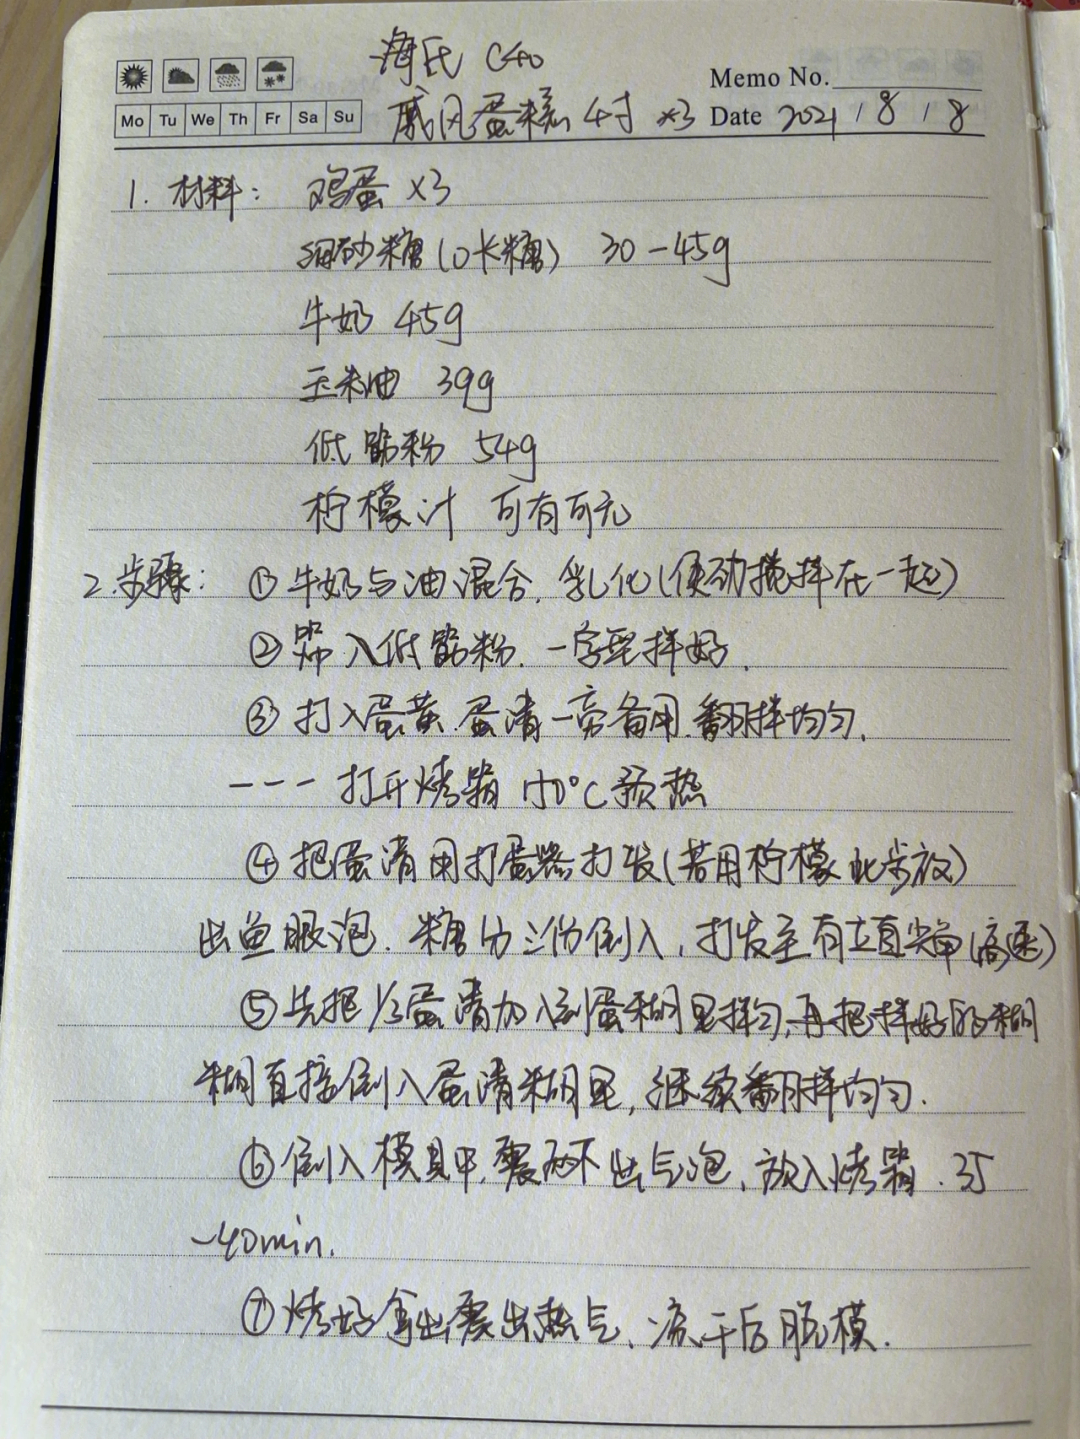 海氏 C40
Memo No.
Mo Tu We Th Fr Sa Su
戚风蛋糕 4寸 ×3
Date 2021 / 8 / 8
1. 材料: 鸡蛋 ×3
细砂糖(0卡糖) 30-45g
牛奶 45g
玉米油 39g
低筋粉 54g
柠檬汁 可有可无
2. 步骤: ① 牛奶与油混合, 乳化(使劲搅拌在一起)
② 筛入低筋粉. 一字型拌好.
③ 打入蛋黄, 蛋清一旁备用. 翻拌均匀.
--- 打开烤箱 150°C 预热
④ 把蛋清用打蛋器打发(若用柠檬此步放)
出鱼眼泡. 糖分三份倒入, 打发至有立直尖角(高速)
⑤ 先把1/3蛋清加入到蛋糊里拌匀, 再把拌好的糊
糊直接倒入蛋清糊里, 继续翻拌均匀.
⑥ 倒入模具中, 震两下出气泡, 放入烤箱. 35
-40min.
⑦ 烤好拿出震出热气, 凉干后脱模.